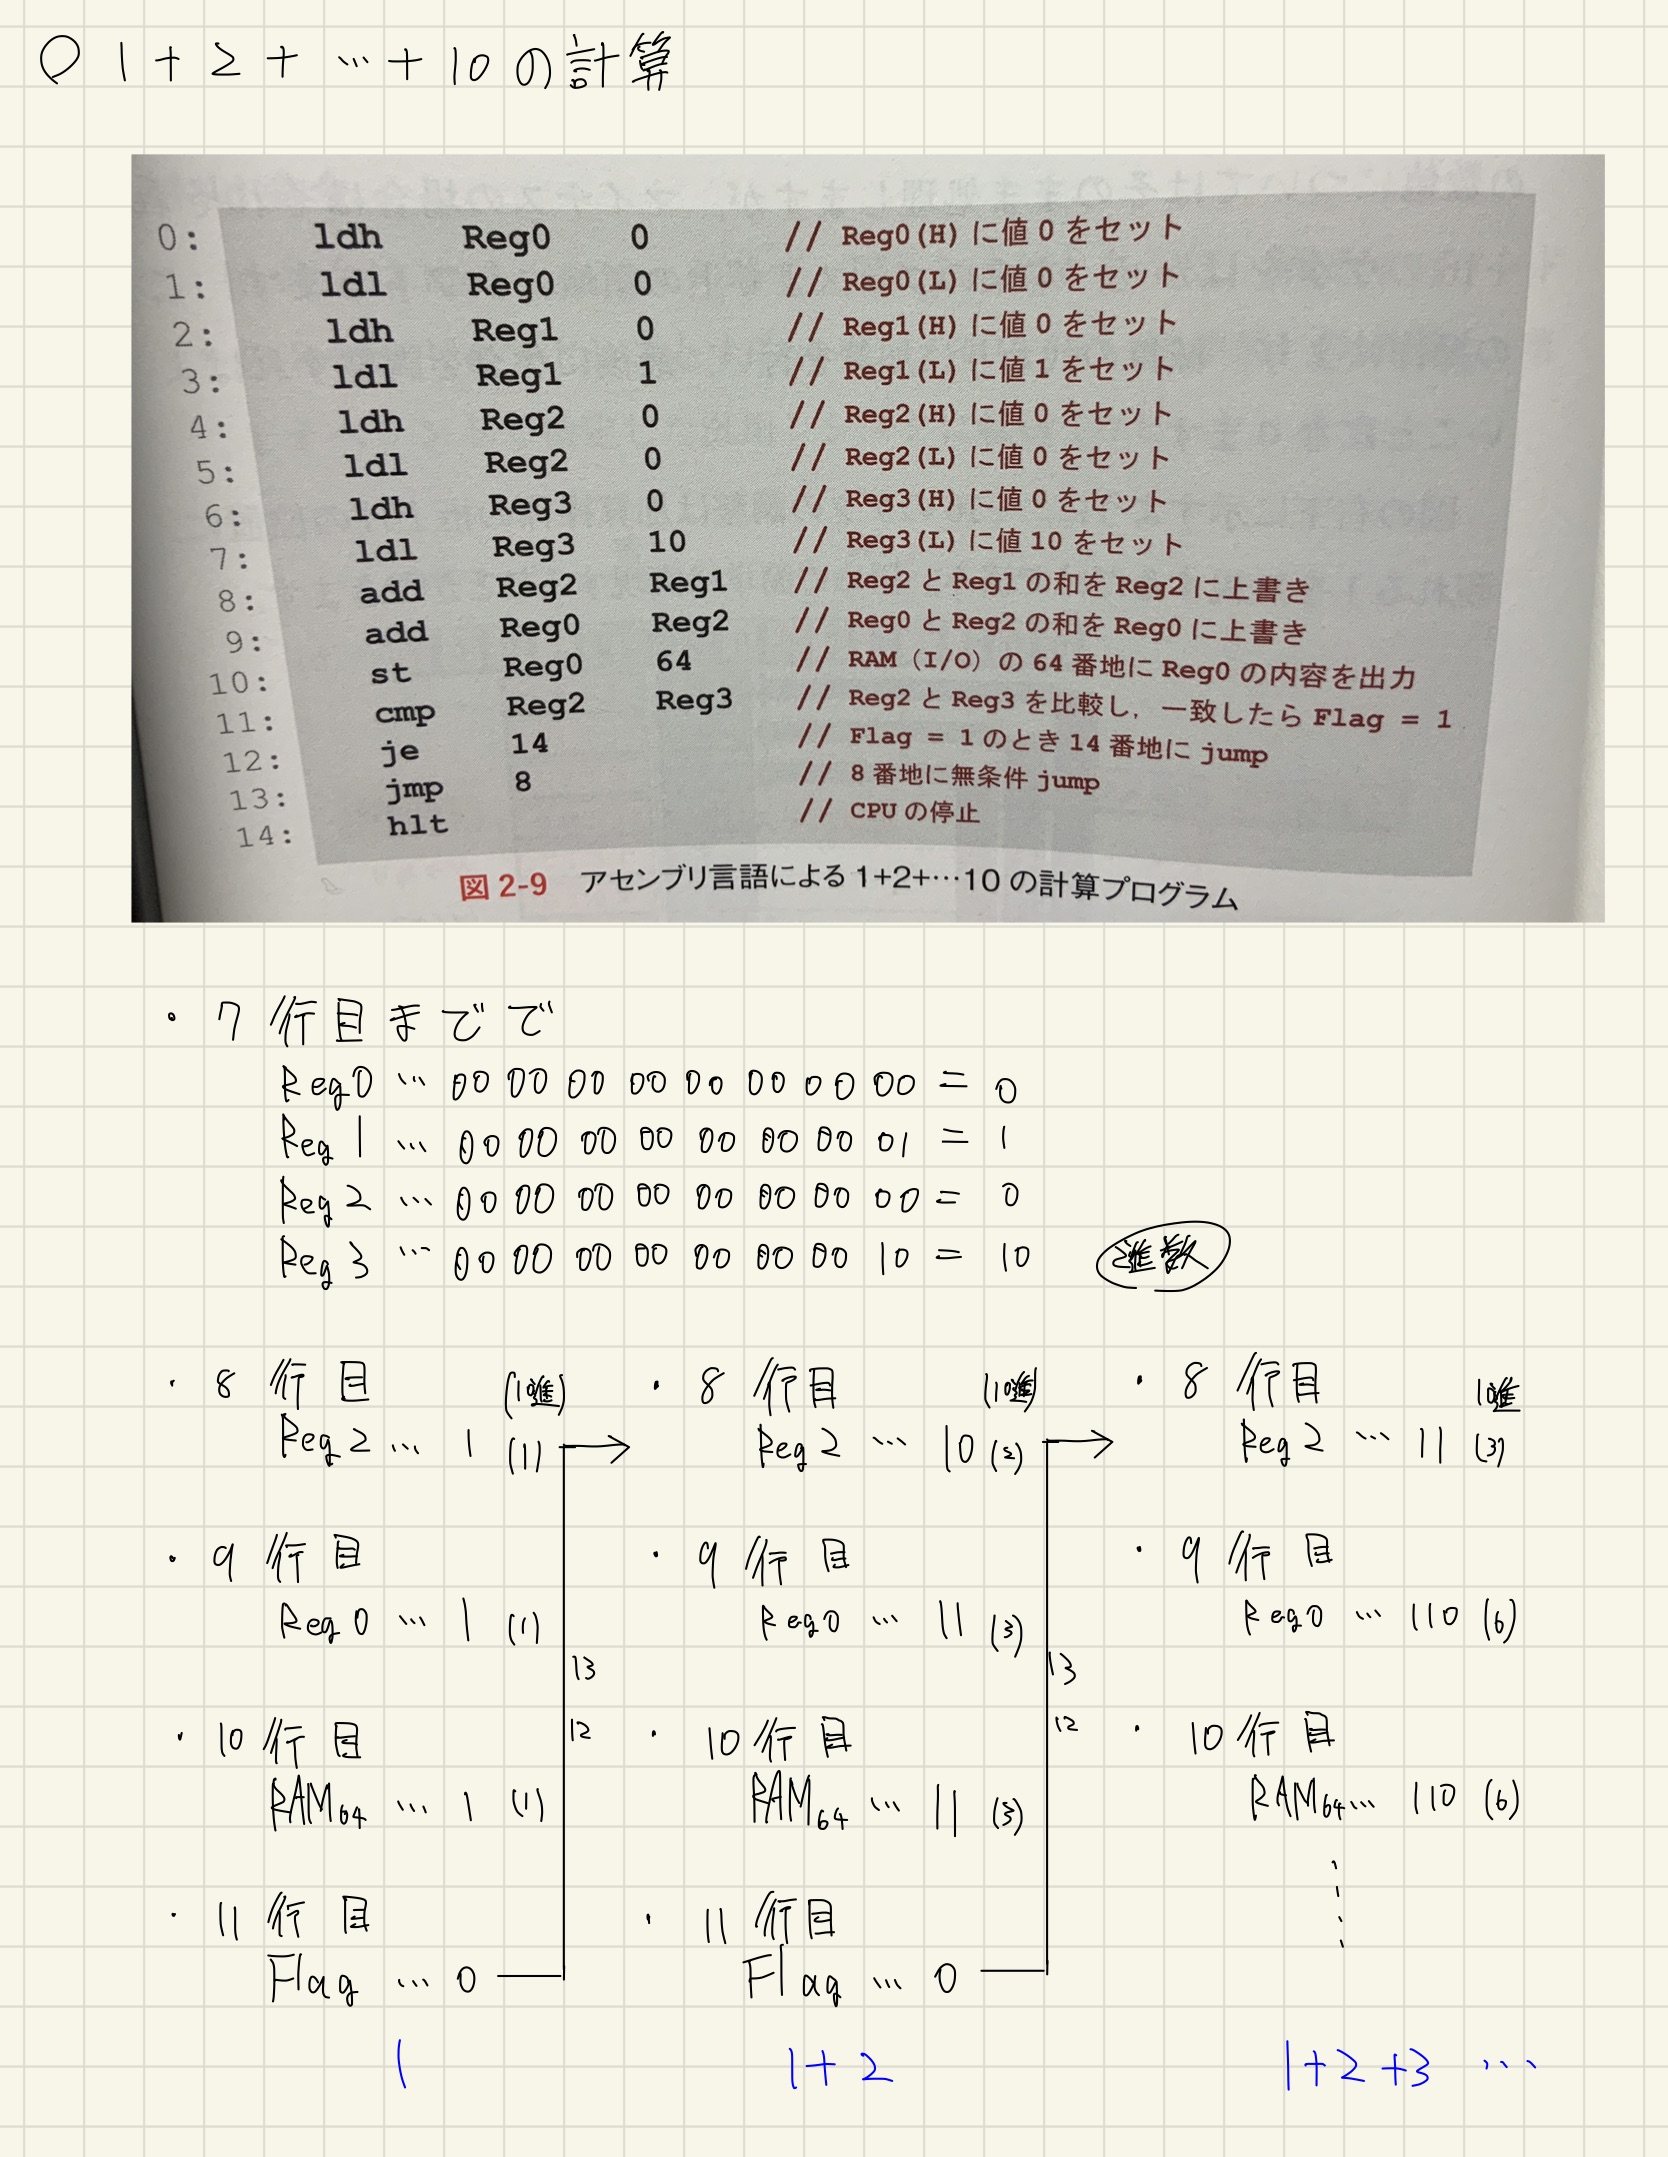 ○ 1+2+…+10の計算
0: ldh Reg0 0 // Reg0(H) に値 0 をセット
1: ldl Reg0 0 // Reg0(L) に値 0 をセット
2: ldh Reg1 0 // Reg1(H) に値 0 をセット
3: ldl Reg1 1 // Reg1(L) に値 1 をセット
4: ldh Reg2 0 // Reg2(H) に値 0 をセット
5: ldl Reg2 0 // Reg2(L) に値 0 をセット
6: ldh Reg3 0 // Reg3(H) に値 0 をセット
7: ldl Reg3 10 // Reg3(L) に値 10 をセット
8: add Reg2 Reg1 // Reg2 と Reg1 の和を Reg2 に上書き
9: add Reg0 Reg2 // Reg0 と Reg2 の和を Reg0 に上書き
10: st Reg0 64 // RAM（I/O）の 64 番地に Reg0 の内容を出力
11: cmp Reg2 Reg3 // Reg2 と Reg3 を比較し，一致したら Flag = 1
12: je 14 // Flag = 1 のとき 14 番地に jump
13: jmp 8 // 8 番地に無条件 jump
14: hlt // CPU の停止
図 2-9 アセンブリ言語による 1+2+…10 の計算プログラム
・7行目までで
Reg0 … 00 00 00 00 00 00 00 00 = 0
Reg1 … 00 00 00 00 00 00 00 01 = 1
Reg2 … 00 00 00 00 00 00 00 00 = 0
Reg3 … 00 00 00 00 00 00 00 10 = 10 2進数
・8行目 (10進)
Reg2 … 1 (1)
・9行目
Reg0 … 1 (1)
13
12
・10行目
RAM64 … 1 (1)
・11行目
Flag … 0
1
・8行目 (10進)
Reg2 … 10 (2)
・9行目
Reg0 … 11 (3)
13
12
・10行目
RAM64 … 11 (3)
・11行目
Flag … 0
1+2
・8行目 10進
Reg2 … 11 (3)
・9行目
Reg0 … 110 (6)
・10行目
RAM64 … 110 (6)
1+2+3 …